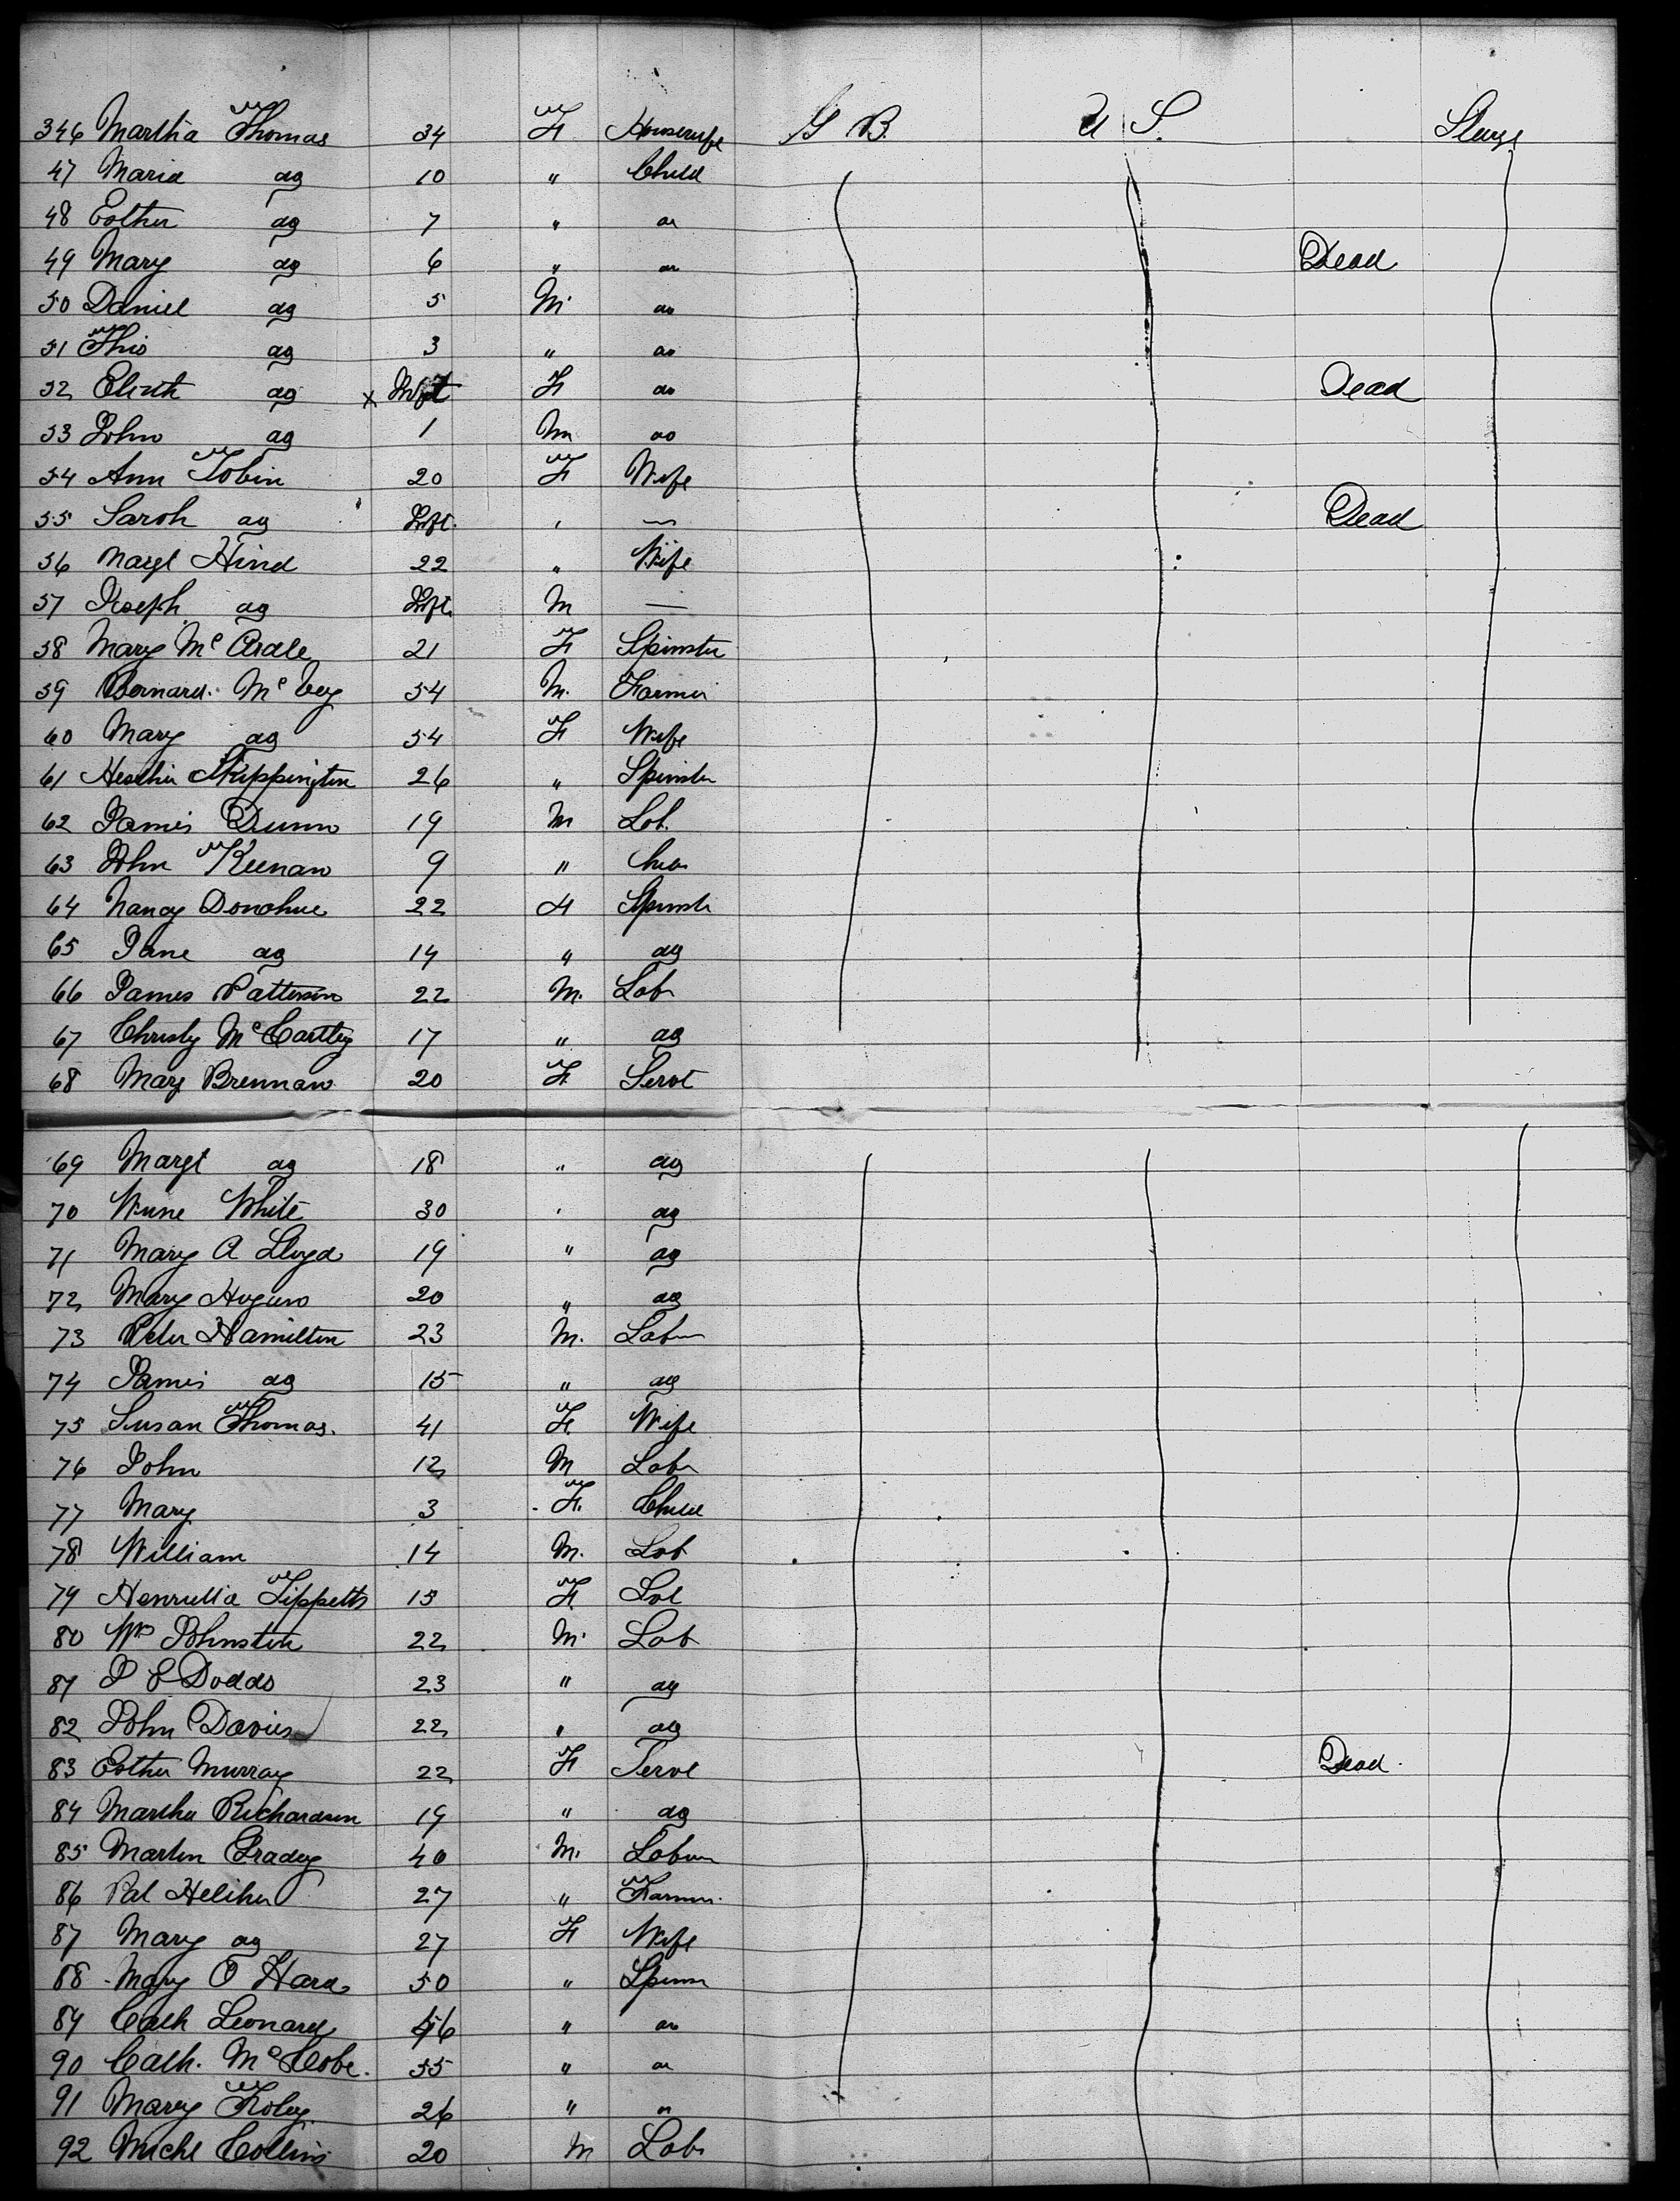 346 Martha Thomas 34 F Housewife G B. U S. Steerge
47 Maria do 10 " Child
48 Esther do 7 " do
49 Mary do 6 " do Dead
50 Daniel do 5 M do
51 Thos do 3 " do
52 Elizth do x Inft F do Dead
53 John do 1 M do
54 Ann Tobin 20 F Wife
55 Sarah do Inft. " — Dead
56 Margt Hind 22 " Wife
57 Joseph do Inft. M —
58 Mary Mc Ardle 21 F Spinster
59 Bernard Mc 54 M. Farmer
60 Mary do 54 F Wife
61 Skeffington 26 " Spinster
62 James Dunn 19 M Lab.
63 John Keenan 9 "
64 Nancy Donohue 22 F Spinstr
65 Jane do 14 " do
66 James Patterson 22 M. Labr
67 Christy McCartley 17 " do
68 Mary Brennan 20 F. Servt
69 Margt do 18 " do
70 White 30 " do
71 Mary A Lloyd 19 " do
72 Mary 20 " do
73 Peter Hamilton 23 M. Labr
74 James do 15 " do
75 Susan Thomas. 41 F. Wife
76 John 12 M Labr
77 Mary 3 F. Child
78 William 14 M. Lab
79 Henrietta Tippetts 15 F.
80 Wm Johnston 22 M. Lab
81 Dodds 23 " do
82 John Davies 22 " do
83 Esther Murray 22 F Servt Dead.
84 Martha Richardson 19 " do
85 Martin Grady 40 M. Labour
86 Pat 27 " Farmer.
87 Mary do 27 F Wife
88 Mary O Hara 50 " Spinr
89 Cath Leonard 46 " do
90 Cath. McCabe. 55 " do
91 Mary Foley 26 " "
92 Michl Collins 20 M Labr